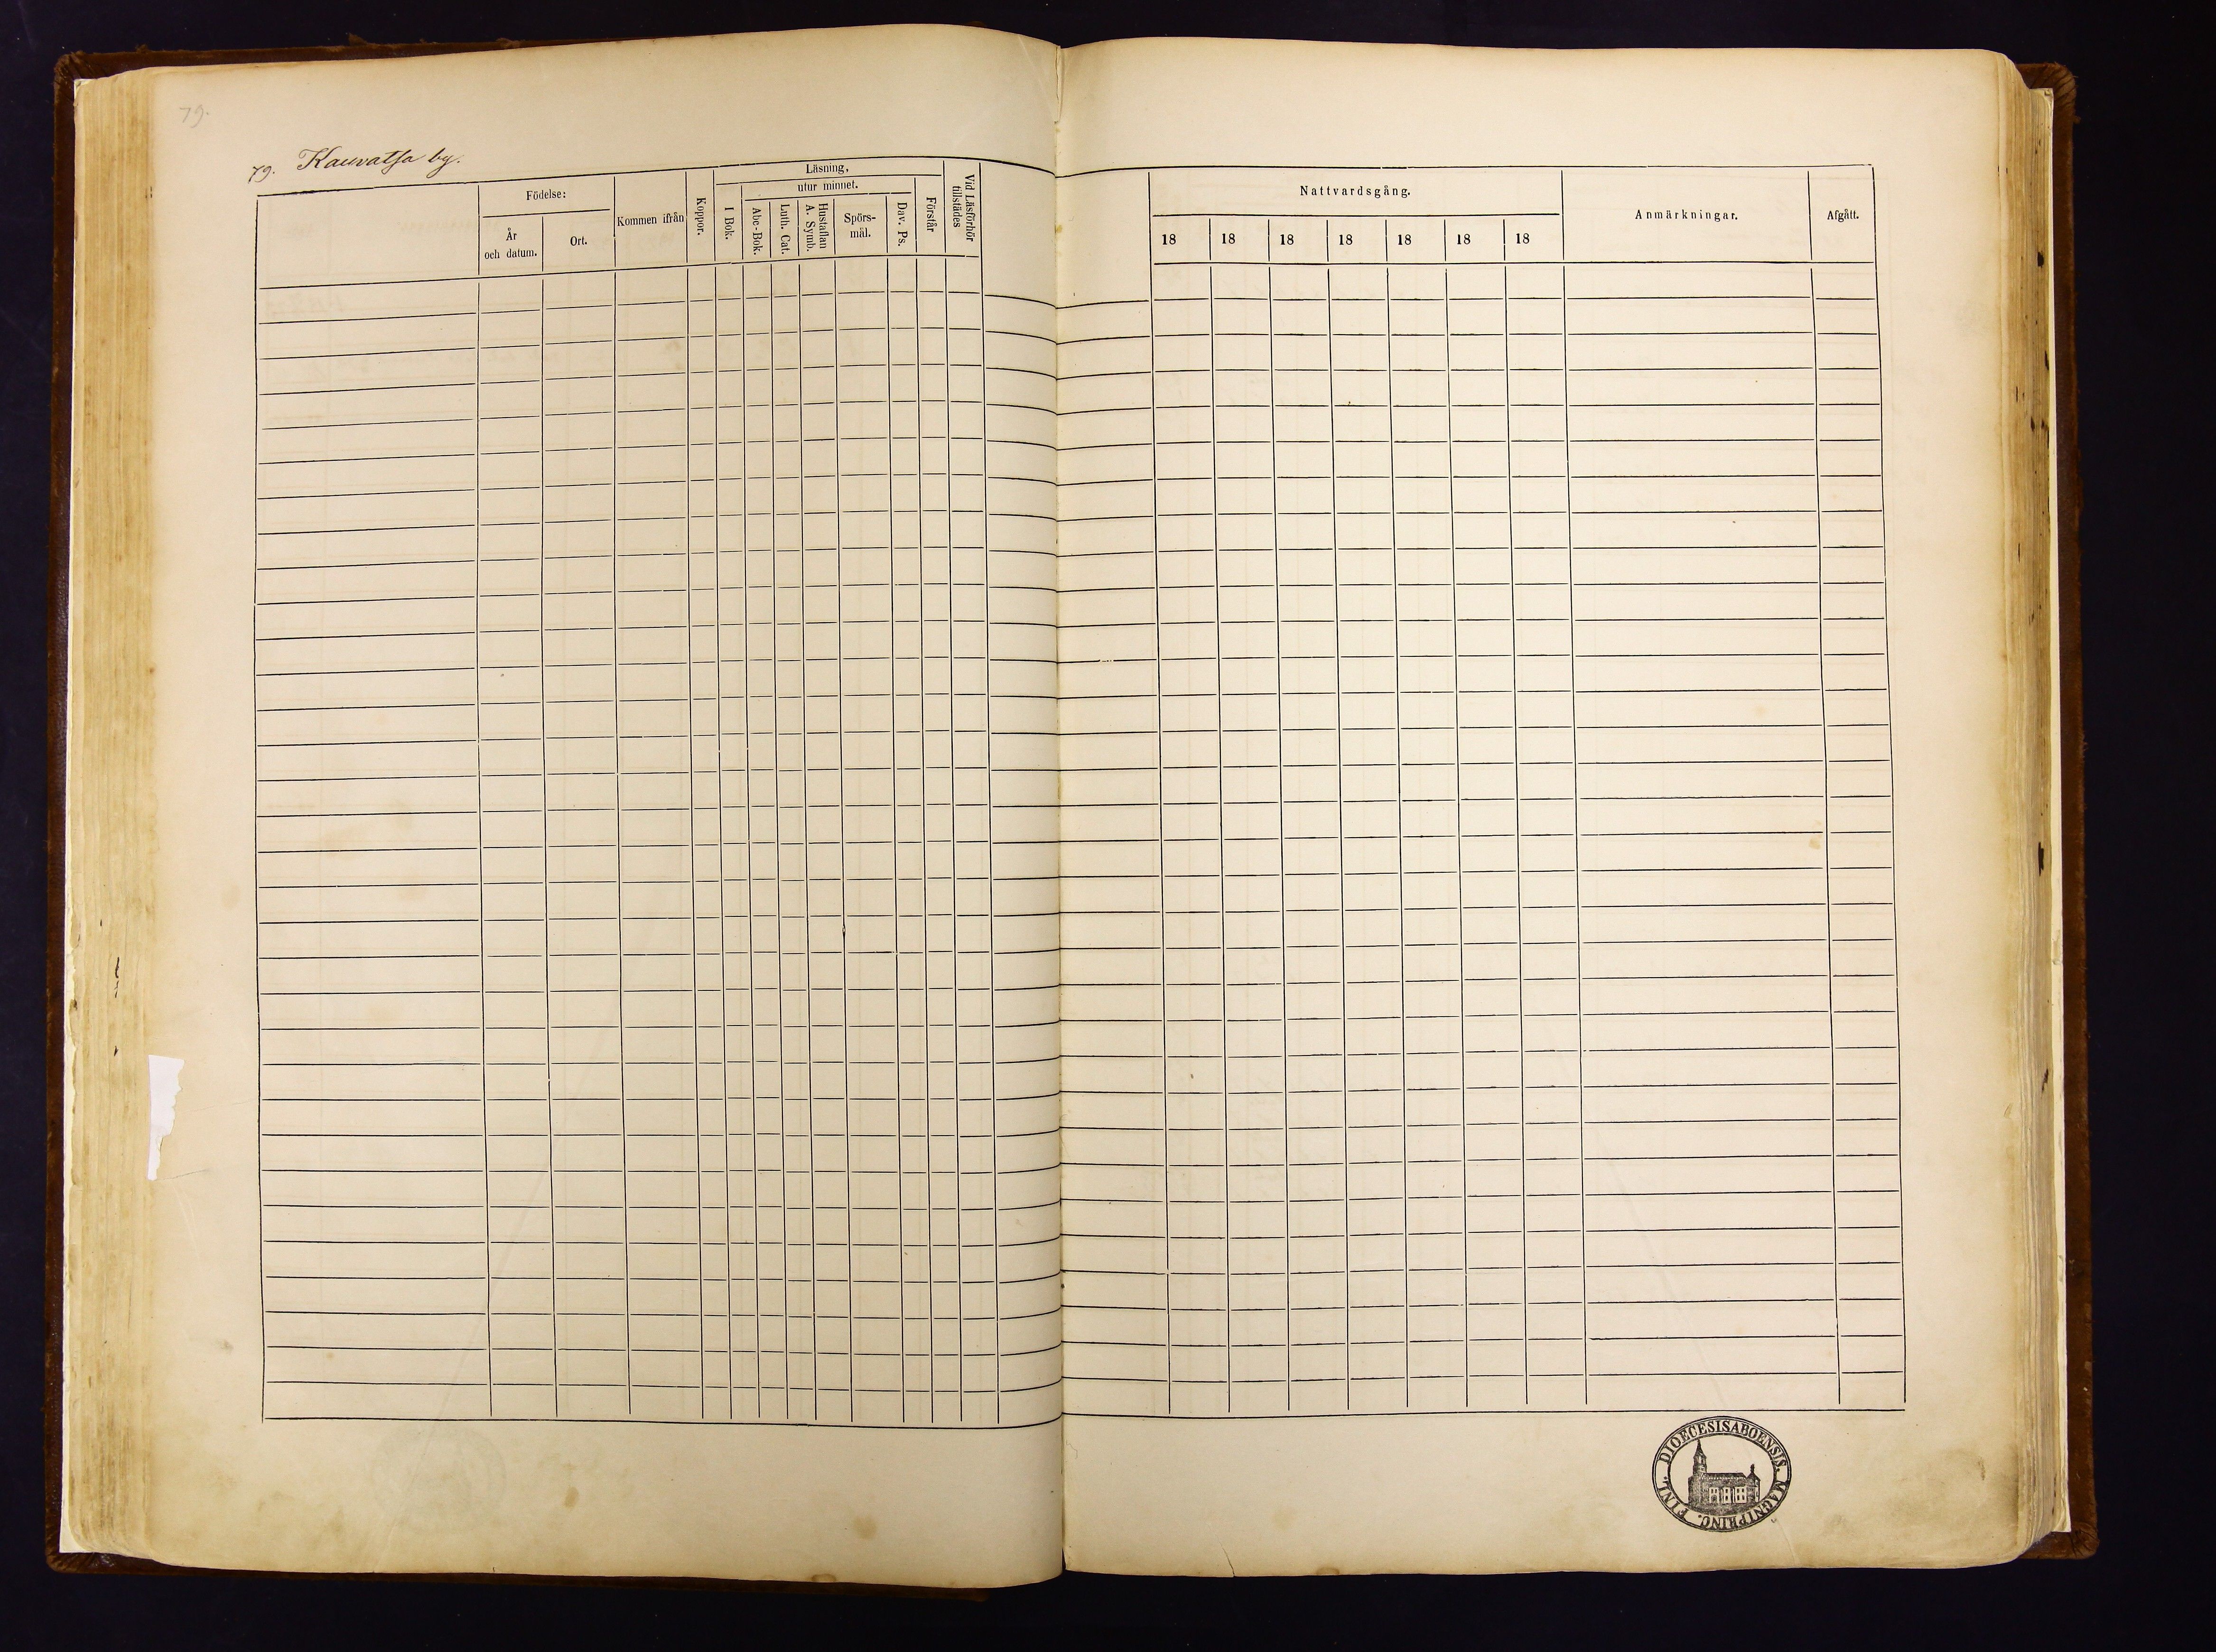 79.
79. Kauvatsa by.
Födelse:
År
och datum.
Ort.
Kommen ifrån
Koppor.
Läsning,
utur minnet.
I Bok.
Abc-Bok.
Luth. Cat.
Hustaflan
A. Symb.
Spörs-
mål.
Dav. Ps.
Förstår
Vid Läsförhör
tillstädes
Nattvardsgång.
18 18 18 18 18 18 18
Anmärkningar.
Afgått.
FINL. DIOECESISABOENSIS. MAGNIPRINC.